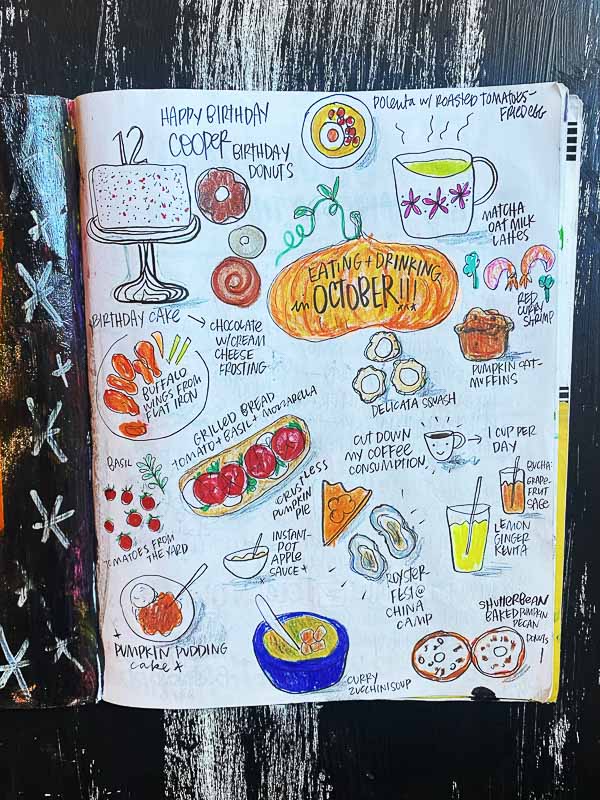 HAPPY BIRTHDAY
COOPER
12
BIRTHDAY
DONUTS
POLENTA W/ ROASTED TOMATOES-
FRIED EGG
MATCHA
OAT MILK
LATTES
EATING + DRINKING
in OCTOBER!!!
BIRTHDAY CAKE →
CHOCOLATE
W/CREAM
CHEESE
FROSTING
RED
CURRY
SHRIMP
PUMPKIN OAT-
MUFFINS
BUFFALO
WINGS FROM
FLAT IRON
DELICATA SQUASH
GRILLED BREAD
TOMATO + BASIL + MOZZARELLA
CUT DOWN
MY COFFEE
CONSUMPTION
→ 1 CUP PER
DAY
BASIL
TOMATOES FROM
THE YARD
CRUSTLESS
PUMPKIN
PIE
BUCHA-
GRAPE-
FRUIT
SAGE
LEMON
GINGER
KEVITA
INSTANT-
POT
APPLE
SAUCE +
OYSTER
FEST @
CHINA
CAMP
PUMPKIN PUDDING
CAKE
CURRY
ZUCCHINI SOUP
SHUTTERBEAN
BAKED PUMPKIN
PECAN
DONUTS